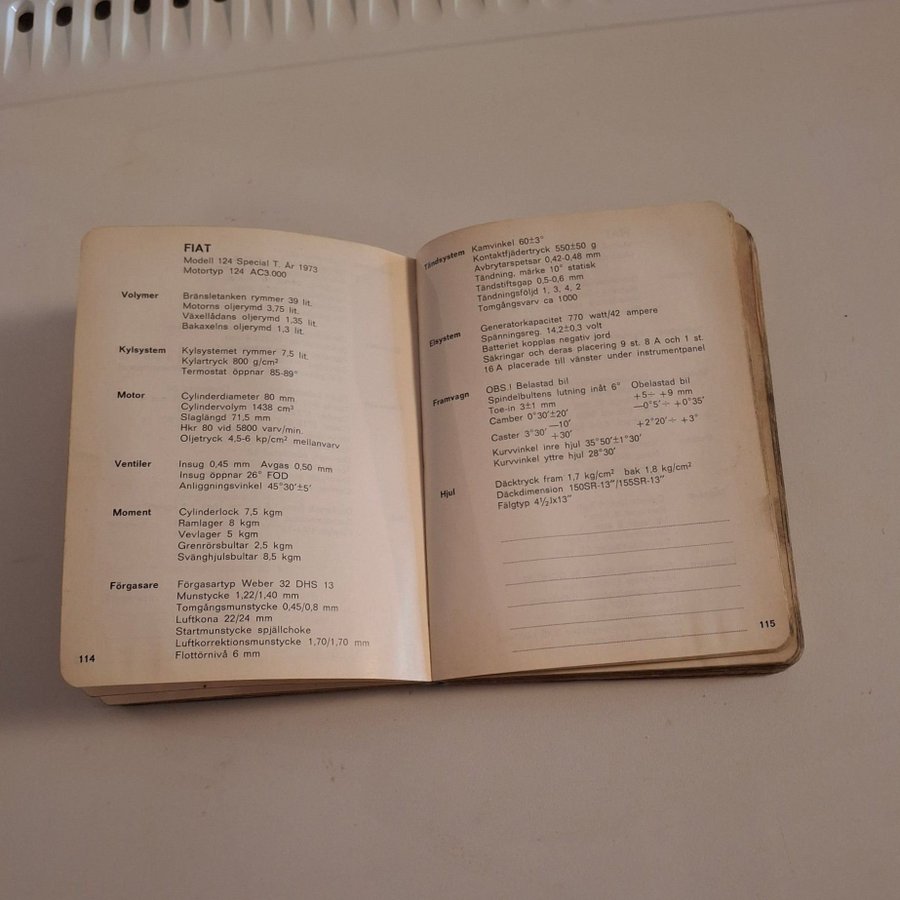 FIAT
Modell 124 Special T. År 1973
Motortyp 124 AC3.000
Volymer Bränsletanken rymmer 39 lit.
Motorns oljerymd 3,75 lit.
Växellådans oljerymd 1,35 lit.
Bakaxelns oljerymd 1,3 lit.
Kylsystem Kylsystemet rymmer 7,5 lit.
Kylartryck 800 g/cm²
Termostat öppnar 85-89°
Motor Cylinderdiameter 80 mm
Cylindervolym 1438 cm³
Slaglängd 71,5 mm
Hkr 80 vid 5800 varv/min.
Oljetryck 4,5-6 kp/cm² mellanvarv
Ventiler Insug 0,45 mm Avgas 0,50 mm
Insug öppnar 26° FÖD
Anliggningsvinkel 45°30'±5'
Moment Cylinderlock 7,5 kgm
Ramlager 8 kgm
Vevlager 5 kgm
Grenrörsbultar 2,5 kgm
Svänghjulsbultar 8,5 kgm
Förgasare Förgasartyp Weber 32 DHS 13
Munstycke 1,22/1,40 mm
Tomgångsmunstycke 0,45/0,8 mm
Luftkona 22/24 mm
Startmunstycke spjällchoke
Luftkorrektionsmunstycke 1,70/1,70 mm
Flottörnivå 6 mm
114
Tändsystem Kamvinkel 60±3°
Kontaktfjädertryck 550±50 g
Avbrytarspetsar 0,42-0,48 mm
Tändning, märke 10° statisk
Tändstiftsgap 0,5-0,6 mm
Tändningsföljd 1, 3, 4, 2
Tomgångsvarv ca 1000
Elsystem Generatorkapacitet 770 watt/42 ampere
Spänningsreg. 14,2±0,3 volt
Batteriet kopplas negativ jord
Säkringar och deras placering 9 st. 8 A och 1 st.
16 A placerade till vänster under instrumentpanel
Framvagn OBS.! Belastad bil Obelastad bil
Spindelbultens lutning inåt 6°
Toe-in 3±1 mm +5÷ +9 mm
Camber 0°30'±20' —0°5'÷ +0°35'
Caster 3°30' —10' +30' +2°20'÷ +3°
Kurvvinkel inre hjul 35°50'±1°30'
Kurvvinkel yttre hjul 28°30'
Hjul Däcktryck fram 1,7 kg/cm² bak 1,8 kg/cm²
Däckdimension 150SR-13"/155SR-13"
Fälgtyp 4½Jx13"
115